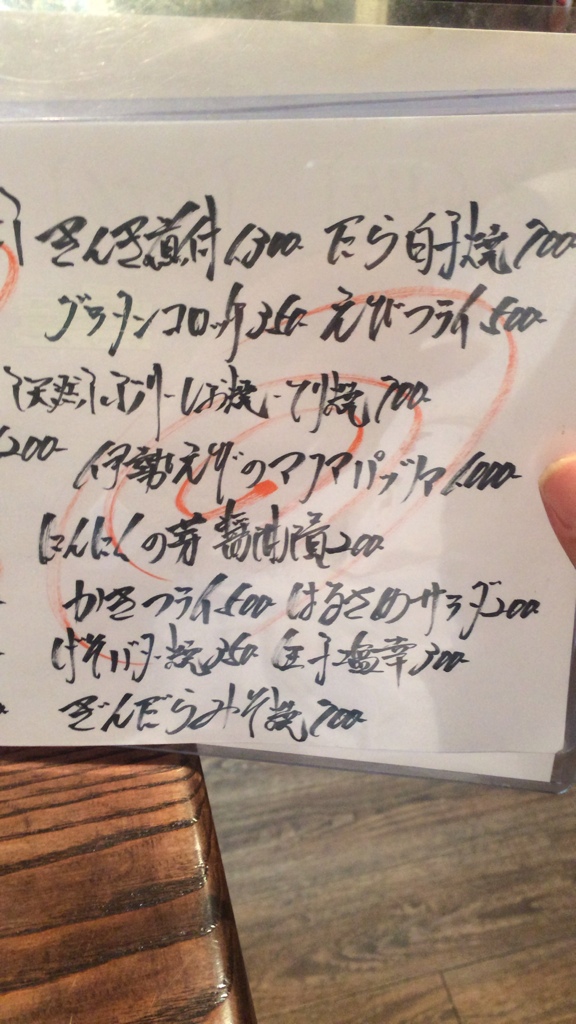 きんき煮付 1,300- たら白子焼 700-
グラタンコロッケ 350- えびフライ 500-
天然ぶりしお焼・てり焼 700-
200-
伊勢えびの 1,000-
にんにくの芽醤油漬 200-
かきフライ 500- はるさめサラダ 200-
げそバター焼 350- 300-
ぎんだらみそ焼 700-